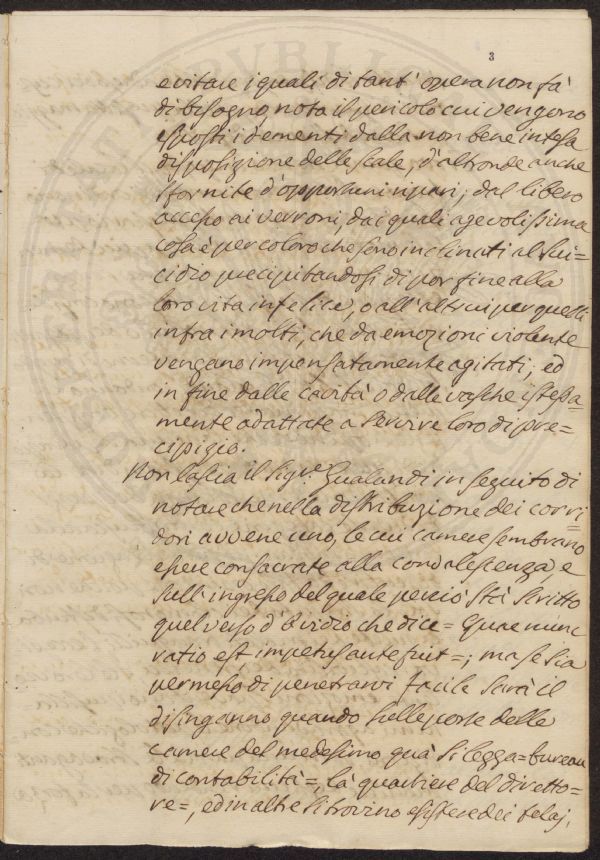 3
evitare i quali di tant' opera non fà
di bisogno, nota il pericolo cui vengono
esposti i dementi dalla non bene intesa
disposizione delle scale, d'altronde anche
sfornite d'opportuni ripari; dal libero
accesso ai verroni, dai quali agevolissima
cosa è per coloro che sono inclinati al sui=
cidio precipitandosi di por fine alla
loro vita infelice, o all'altrui per quelli
infra i molti, che da emozioni violente
vengano impensatamente agitati; ed
in fine dalle cavità o dalle vasche istessa=
mente adattate a servire loro di pre=
cipizio.
Non lascia il Sig.re Gualandi in seguito di
notare che nella distribuzione dei corri=
dori avvene uno, le cui camere sembrano
essere consacrate alla convalescenza, e
sull'ingresso del quale perciò stà scritto
quel verso d'Ovidio che dice= Quae nunc
ratio est, impetus ante fuit=; ma se sia
permesso di penetrarvi facile sarà il
disinganno quando sulle porte delle
camere del medesimo quà si legga= bureau
di contabilità=, là quartiere del diretto=
re=, ed in altre si trovino esistere dei telaj,